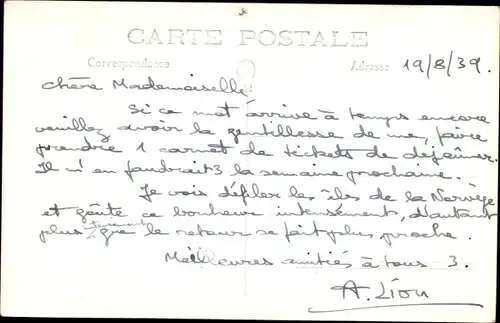 CARTE POSTALE
Correspondance
Adresse 19/8/39.
Chère Mademoiselle
Si ce mot arrive à temps encore
veuillez avoir la gentillesse de me faire
prendre 1 carnet de tickets de déjeuner.
Il m'en faudrait 3 la semaine prochaine.
Je vois défiler les îles de la Norvège
et goûte ce bonheur intensément, d'autant
plus que le retour se fait plus proche.
Meilleures amitiés à tous 3.
A. Lion